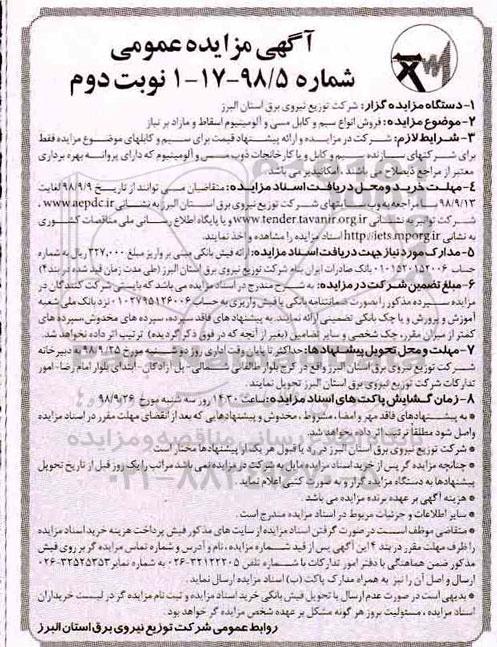 آگهی مزایده عمومی
شماره ۹۸/۵-۱۷-۱ نوبت دوم
۱- دستگاه مزایده گزار: شرکت توزیع نیروی برق استان البرز
۲- موضوع مزایده: فروش انواع سیم و کابل مسی و آلومینیوم اسقاط و مازاد بر نیاز
۳- شرایط لازم: شرکت در مزایده و ارائه پیشنهاد قیمت برای سیم و کابلهای موضوع مزایده فقط
برای شرکتهای سازنده سیم و کابل و یا کارخانجات ذوب مس و آلومینیوم که دارای پروانه بهره برداری
معتبر از مراجع ذیصلاح می باشند، امکانپذیر می باشد.
۴- مهلت خرید و محل دریافت اسناد مزایده: متقاضیان می توانند از تاریخ ۹۸/۹/۹ لغایت
۹۸/۹/۱۳ با مراجعه به وب سایتهای شرکت توزیع نیروی برق استان البرز به نشانی www.aepdc.ir ،
شرکت توانیر به نشانی www.tender.tavanir.org.ir و یا پایگاه اطلاع رسانی ملی مناقصات کشوری
به نشانی http://iets.mporg.ir اسناد مزایده را مشاهده و اخذ نمایند.
۵- مدارک مورد نیاز جهت دریافت اسناد مزایده: ارائه فیش بانکی مبنی بر واریز مبلغ ۳۲۷,۰۰۰ ریال به شماره
حساب ۰۱۰۱۵۲۰۱۵۲۰۰۶ بانک صادرات ایران بنام شرکت توزیع نیروی برق استان البرز (طی مدت زمان قید شده در بند ۴)
۶- مبلغ تضمین شرکت در مزایده: به شرح مندرج در اسناد مزایده می باشد که بایستی شرکت کنندگان در
مزایده سپرده مذکور را بصورت ضمانتنامه بانکی یا فیش واریزی به حساب ۰۱۰۲۷۹۵۱۲۶۰۰۶ نزد بانک ملی شعبه
آموزش و پرورش و یا چک بانکی تضمینی ارائه نمایند. به پیشنهاد های فاقد سپرده، سپرده های مخدوش، سپرده های
کمتر از میزان مقرر، چک شخصی و سایر تضامین (بغیر از آنچه که در فوق ذکر گردیده) ترتیب اثر داده نخواهد شد.
۷- مهلت و محل تحویل پیشنهادها: حداکثر تا پایان وقت اداری روز دوشنبه مورخ ۹۸/۹/۲۵ به دبیرخانه
شرکت توزیع نیروی برق استان البرز واقع در کرج بلوار طالقانی شمالی- پل آزادگان- ابتدای بلوار امام رضا- امور
تدارکات شرکت توزیع نیروی برق استان البرز تحویل نمایند.
۸- زمان گشایش پاکت های اسناد مزایده: ساعت ۱۴:۳۰ روز سه شنبه مورخ ۹۸/۹/۲۶
* به پیشنهادهای فاقد مهر و امضا، مشروط، مخدوش و پیشنهادهایی که بعد از انقضای مهلت مقرر در اسناد مزایده
واصل شود مطلقا ترتیب اثر داده نخواهد شد.
* شرکت توزیع نیروی برق استان البرز در رد یا قبول هر یک از پیشنهادها مختار است
* چنانچه مزایده گر پس از خرید اسناد مزایده مایل به شرکت در مزایده نمی باشد مراتب را یک روز قبل از تاریخ تحویل
پیشنهادها به دستگاه مزایده گزار و به صورت کتبی اعلام نماید.
* هزینه آگهی بر عهده برنده مزایده می باشد
* سایر اطلاعات و جزئیات مربوط در اسناد مزایده مندرج است.
* متقاضی موظف است در صورت گرفتن اسناد مزایده از سایت های مذکور فیش پرداخت هزینه خرید اسناد مزایده
را ظرف مهلت مقرر در بند ۴ این آگهی پس از قید شماره مزایده، نام و آدرس و شماره تماس مزایده گر بر روی فیش
مذکور ضمن هماهنگی با دفتر امور تدارکات با شماره تلفن ۳۲۱۲۲۲۰۵-۰۲۶ به شماره نمابر ۳۲۵۲۵۳۵۳-۰۲۶
ارسال و اصل آن را نیز به همراه مدارک پاکت (ب) اسناد مزایده ارسال نماید.
* بدیهی است در صورت عدم ارسال یا تحویل فیش بانکی خرید اسناد مزایده و ثبت نام مزایده گر در لیست خریداران
اسناد مزایده ، مسئولیت بروز هر گونه مشکل بر عهده شخص مزایده گر خواهد بود.
روابط عمومی شرکت توزیع نیروی برق استان البرز